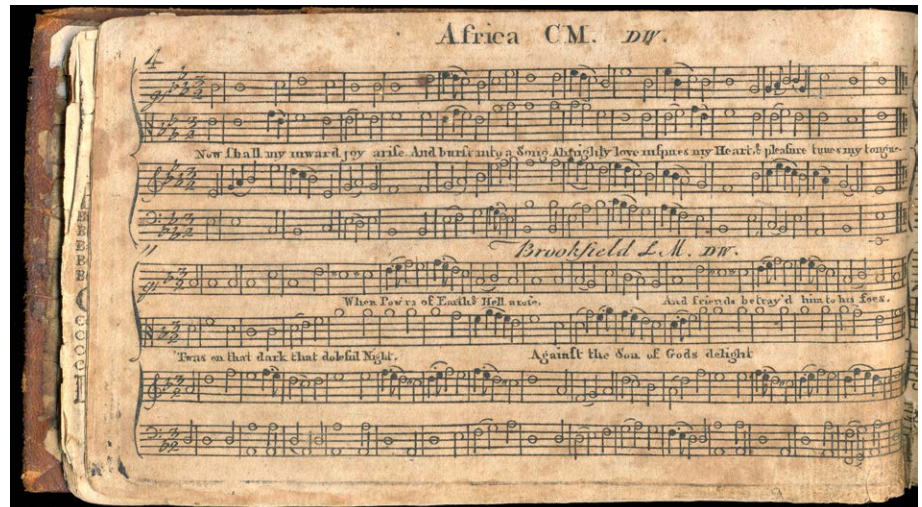 Africa CM. DW.
4
Now ſhall my inward joy ariſe And burſt into a Song Almighty love inſpires my Heart, & pleaſure tunes my tongue.
11
Brookfield L.M. DW.
When Pow'rs of Earth & Hell aroſe, And friends betray'd him to his foes.
'Twas on that dark that doleful Night, Againſt the Son of Gods delight